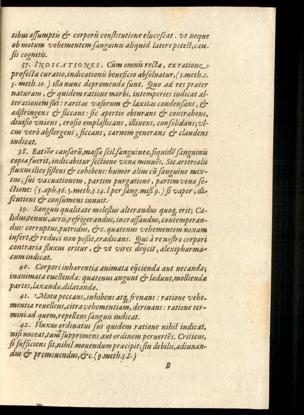 ribus assumptis & corporis constitutione elucescat. ut neque
ob motum vehementem sanguinis aliquid latere potest, cau-
sis cognitis.
37. INDICATIONES. Cum omnis recta, ex ratione
profecta curatio, indicationis beneficio absolvatur, (3. meth. 1.
5. meth. 10.) illa nunc depromenda sunt. Quo ad res præter
naturam, & quidem ratione morbi, intemperies indicat al-
terationem sui: raritas vasorum & laxitas condensans, &
adstringens & siccans: sic apertio obturans & contrahens,
divisio uniens, erosio emplasticans, illinens, consolidans; ul-
cus verò abstergens, siccans, carnem generans & claudens
indicat.
38. Ratiõe causarũ, massa scil. sanguinea, siquidẽ sanguinis
copia fuerit, indicabitur sectione vena minuẽs. Sic arterialis
fluxus ilico sistens & cohibens: humor alius cũ sanguine mix-
tus, sui vacuationem, partim purgatione, partim venæ se-
ctione: (5. aph. 36. 5. meth. 3 14. l. per sang. miss. 9.) si vapor, di-
scutiens & consumens innuit.
39. Sanguis qualitate molestus alterandus quoq; erit; Ca-
lidus, tenuis, acris, refrigerandus, incrassandus, contemperan-
dus: corruptus, putridus, &c. quatenus vehementem noxam
infert, & reduci non possit, eradicans. Quòd à re nostro corpori
contraria fluxus oritur, & ut vires dejicit, alexipharma-
cum indicat.
40. Corpori inhærentia animata ejicienda aut necanda,
inanimata excutienda: quatenus angunt & lædunt, molliendæ
partes, laxandæ, dilatandæ.
41. Mota peccans, inhibens atq; frenans: ratione vehe-
mentiæ revellens, citra vehementiam, derivans: ratione ter-
mini ad quem, repellens sanguis indicat.
42. Fluxus ordinatus sui quidem ratione nihil indicat,
nisi noceat, tum supprimens aut ordinem pervertẽs. Criticus,
si sufficiens sit, nihil movendum præcipit; sin debilis, adjuvan-
dus & promovendus, &c. (9. meth. 5. 8.)
B